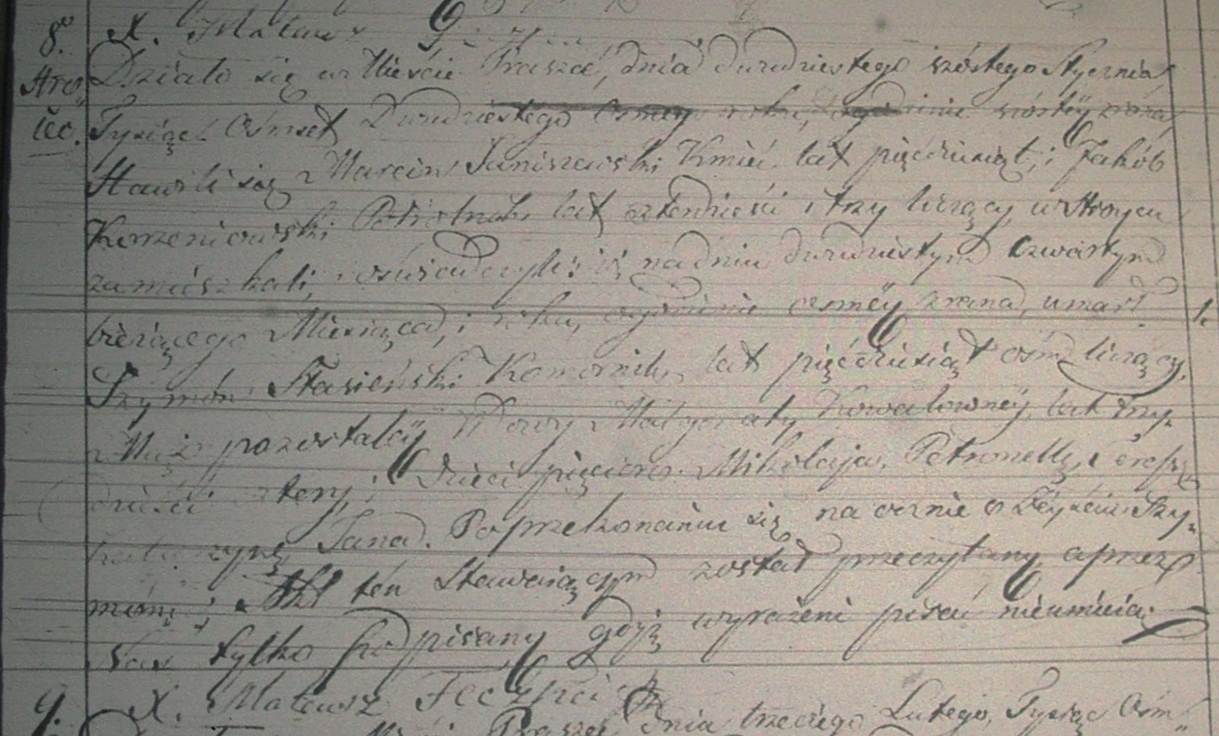 8.
X. Mateusz
Stro
iec.
Działo się w Mieście Praszce, dnia dwudziestego szóstego Stycznia
Tysiąc Ośmset Dwudziestego Osmego roku, o godzinie szóstéy zrana,
Stawili się Marcin Janiszewski Kmieć lat pięćdziesiąt, i Jakób
Korzeniowski Potrolnik lat czterdzieści i trzy liczący w Stroycu
zamieszkali, oświadczyli: iż na dniu dwudziestym czwartym
bieżącego Miesiąca, i roku, o godzinie osméy zrana, umarł
Szymon Stasieński Komornik, lat pięćdziesiąt ośm liczący,
Mąż pozostałéy Wdowy Małgorzaty Kowalownéy, lat trzy-
dzieści cztery, i Dzieci pięcioro Mikołaja, Petronellę,
Katarzynę, Jana. Po przekonaniu się na ocznie o Zeyściu Szy-
mona, Akt ten Stawaiącym został przeczytany a przez
Nas tylko podpisany gdyż wyrażeni pisać nieumieią.
9.
X. Mateusz
Praszce, dnia trzeciego Lutego, Tysiąc Ośm